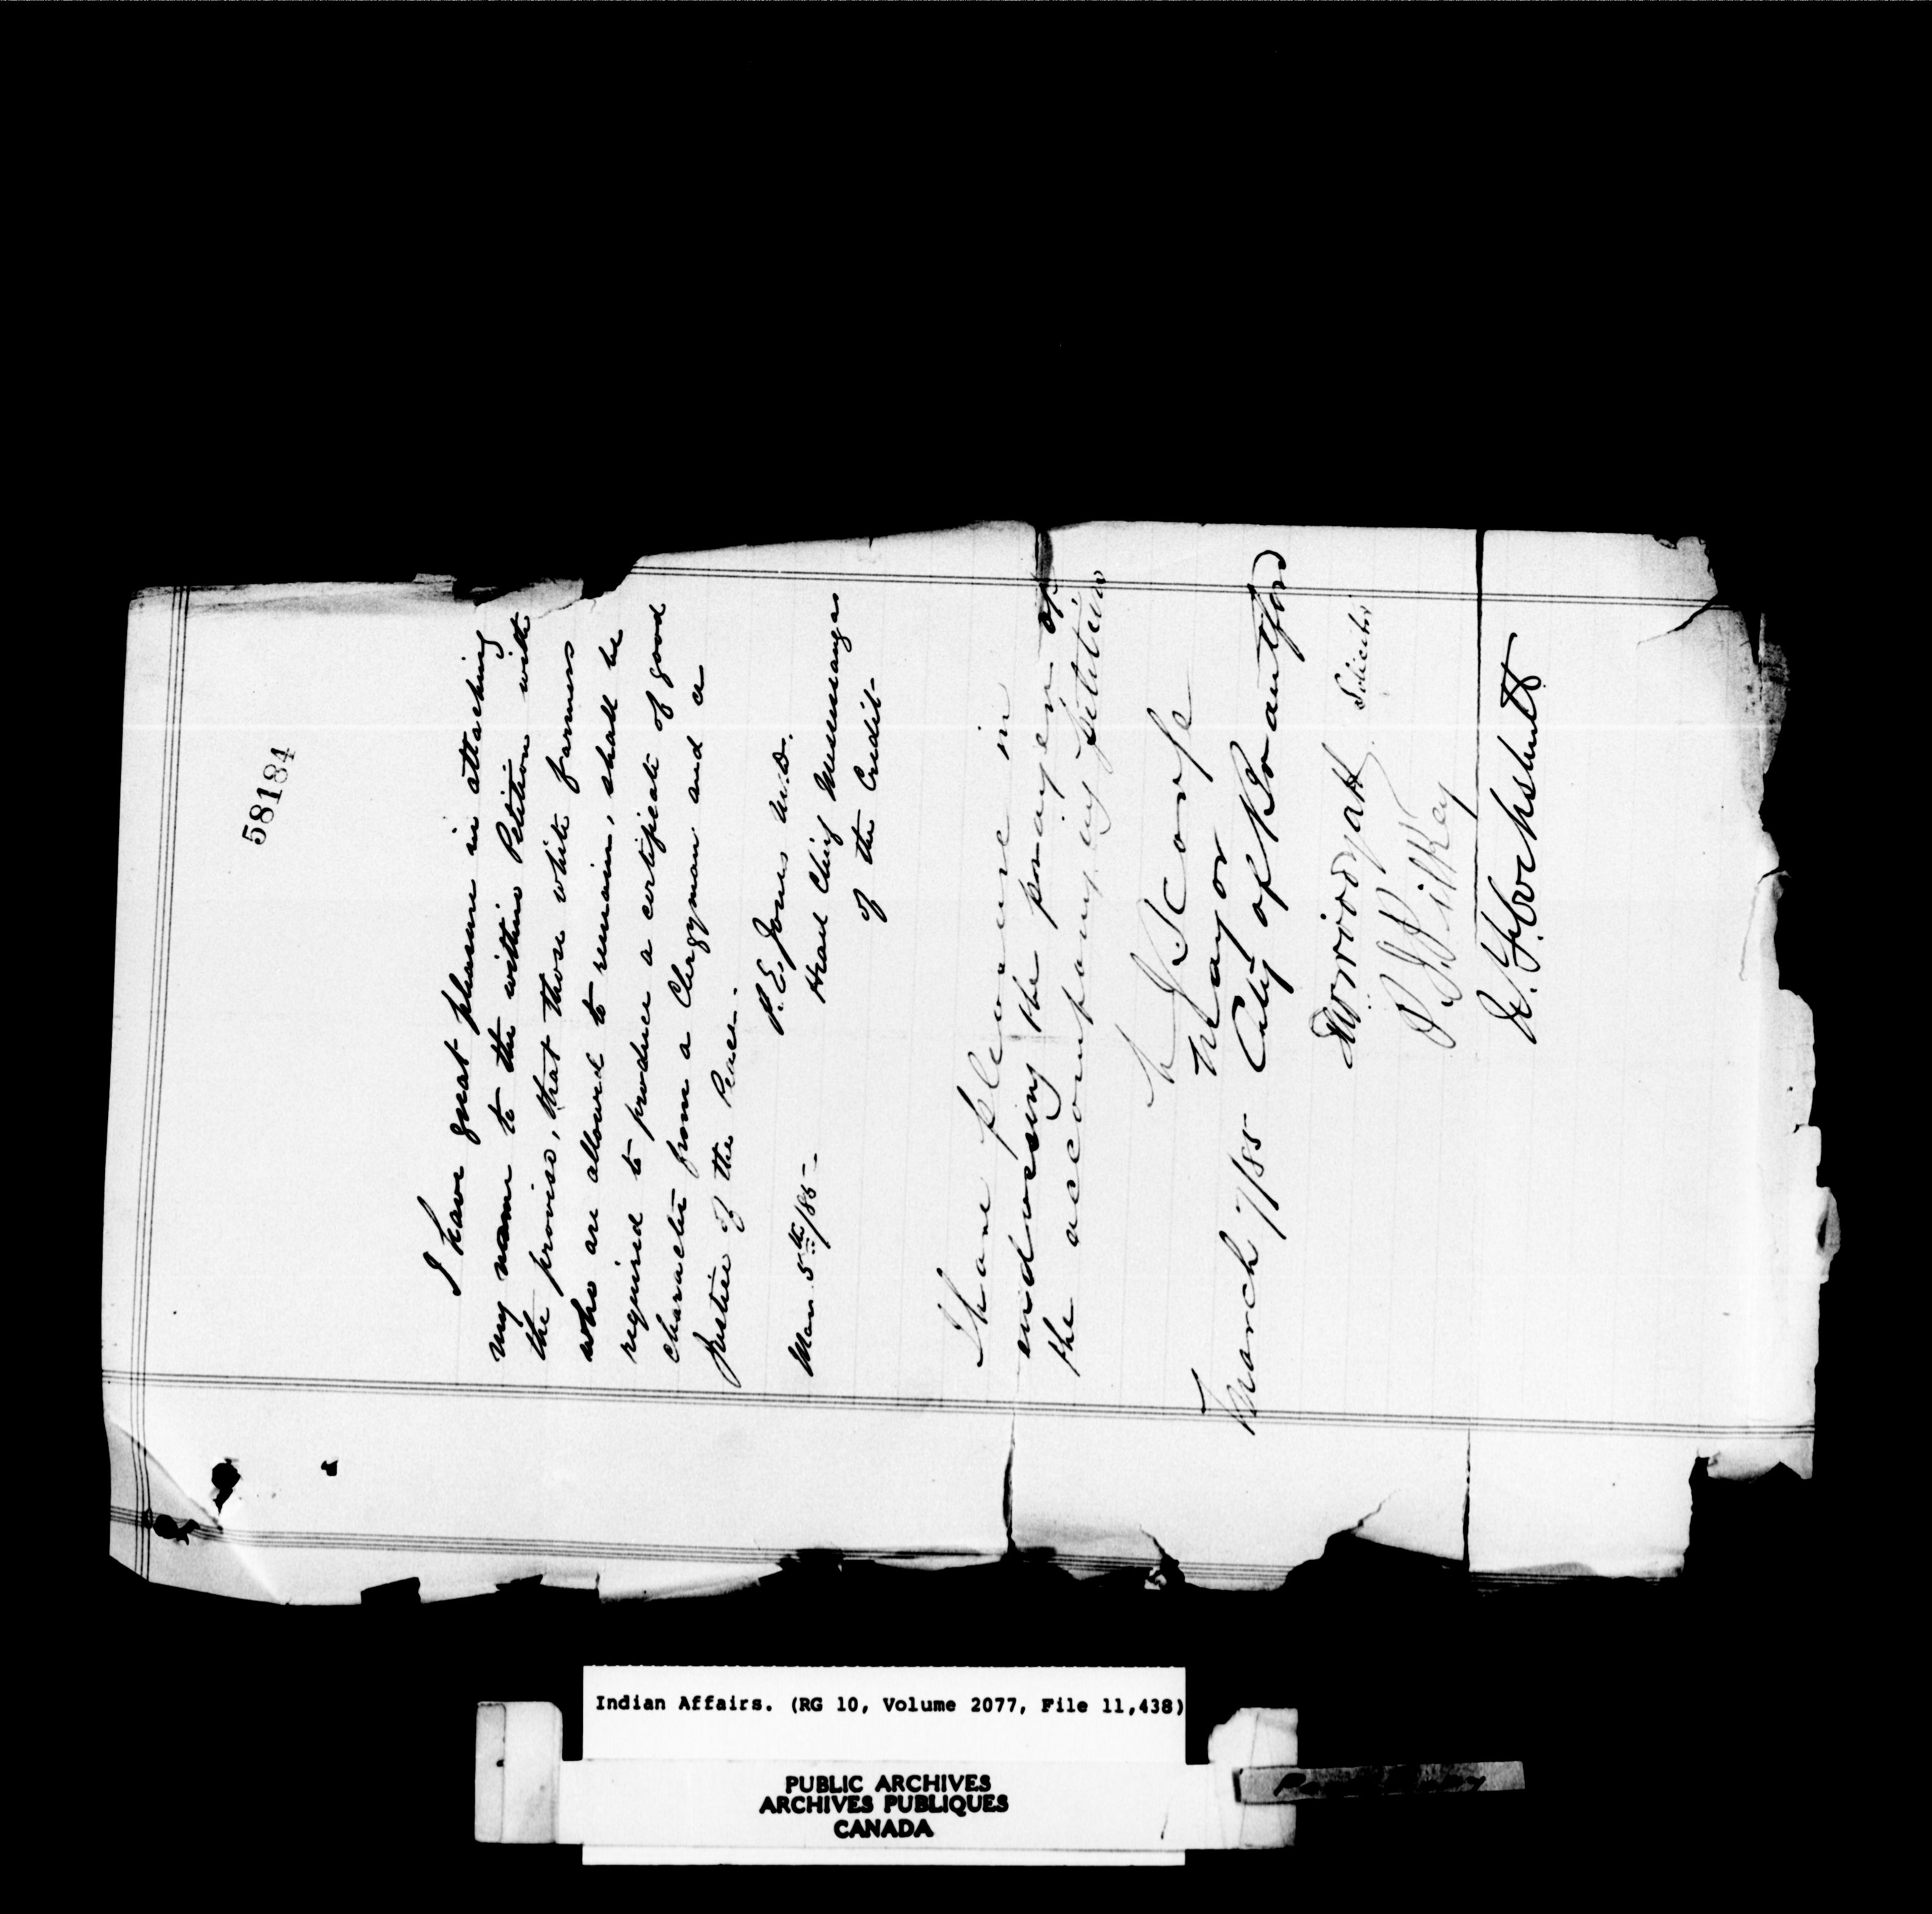 58184
I have great pleasure in attaching
my name to the within Petition with
the proviso, that those white farmers
who are allowed to remain, shall be
required to produce a certificate of good
character from a Clergyman and a
Justice of the Peace.
P. E. Jones M.D.
Mar. 5th/85 - Head Chief Mississaugas
of the Credit -
I have pleasure in
endorsing the prayer of
the accompanying petition
W J Scarfe
Mayor
March 7/85 City of Brantford
Solicitor
W. F. Cockshutt
Indian Affairs. (RG 10, Volume 2077, File 11,438)
PUBLIC ARCHIVES
ARCHIVES PUBLIQUES
CANADA